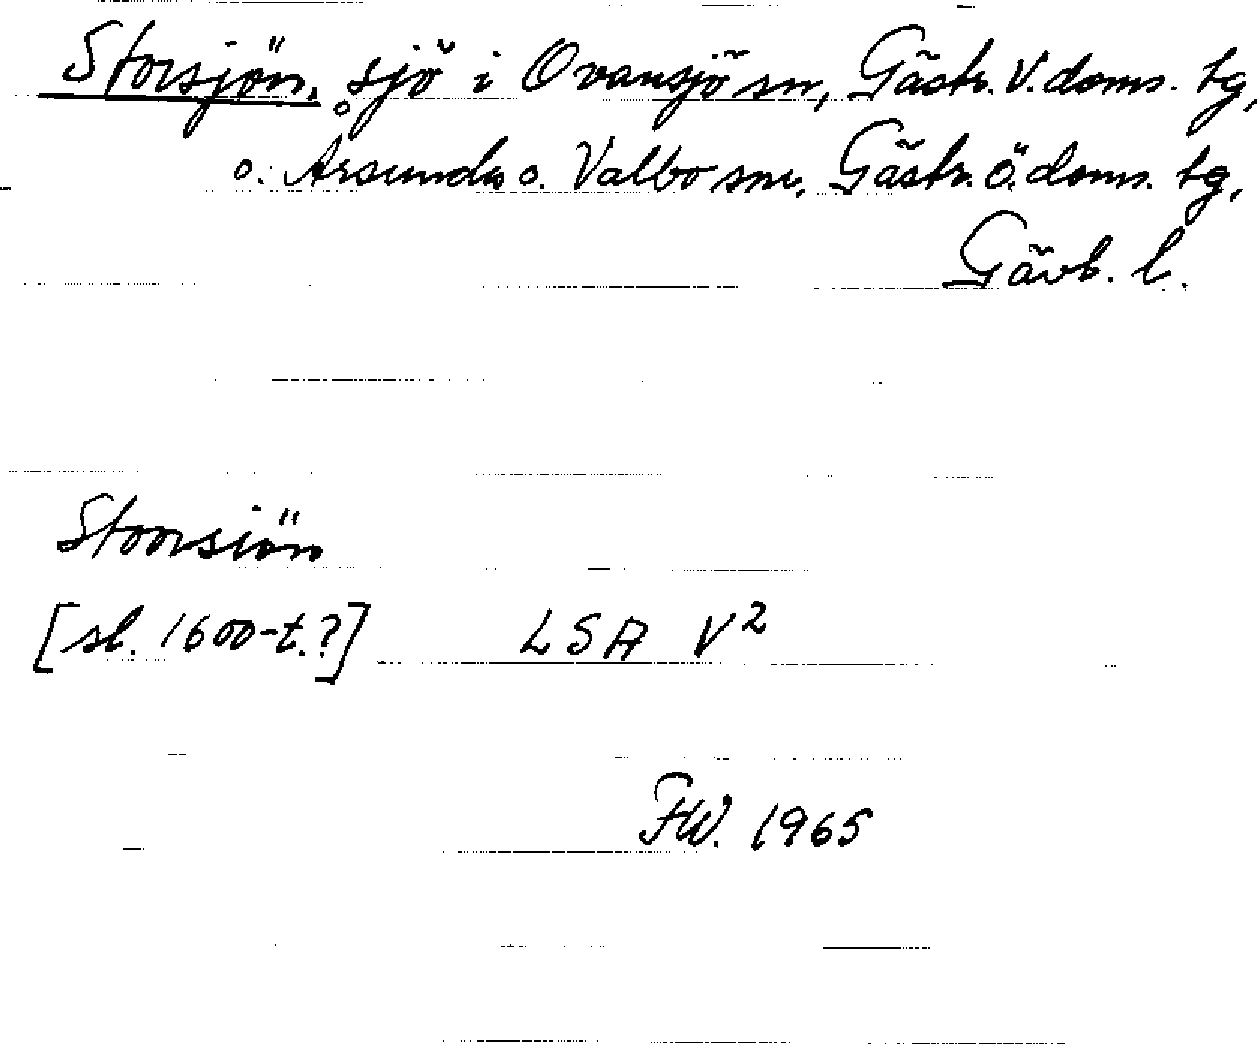 Storsjön, sjö i Ovansjö sn, Gästr. V. doms. tg,
o. Årsunda o. Valbo snr, Gästr. Ö. doms. tg,
Gävb. l.
Stoorsiön
[sl. 1600-t.?] LSA V²
FW. 1965